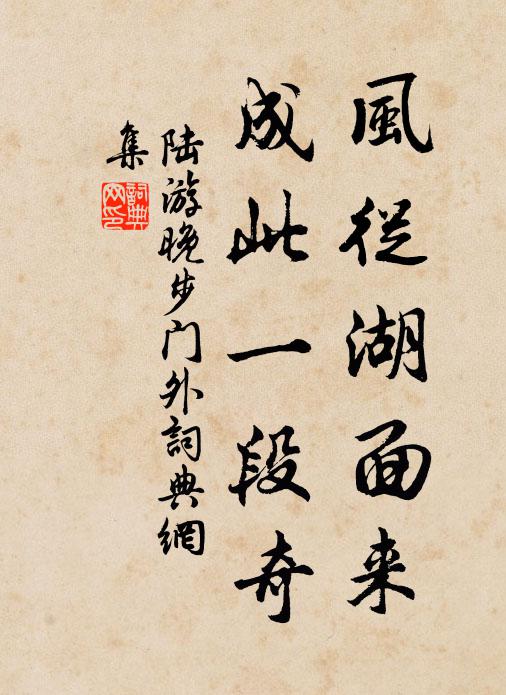 風從湖面来
成此一段奇
陆游晚步门外詞典網
集
詞典
网印